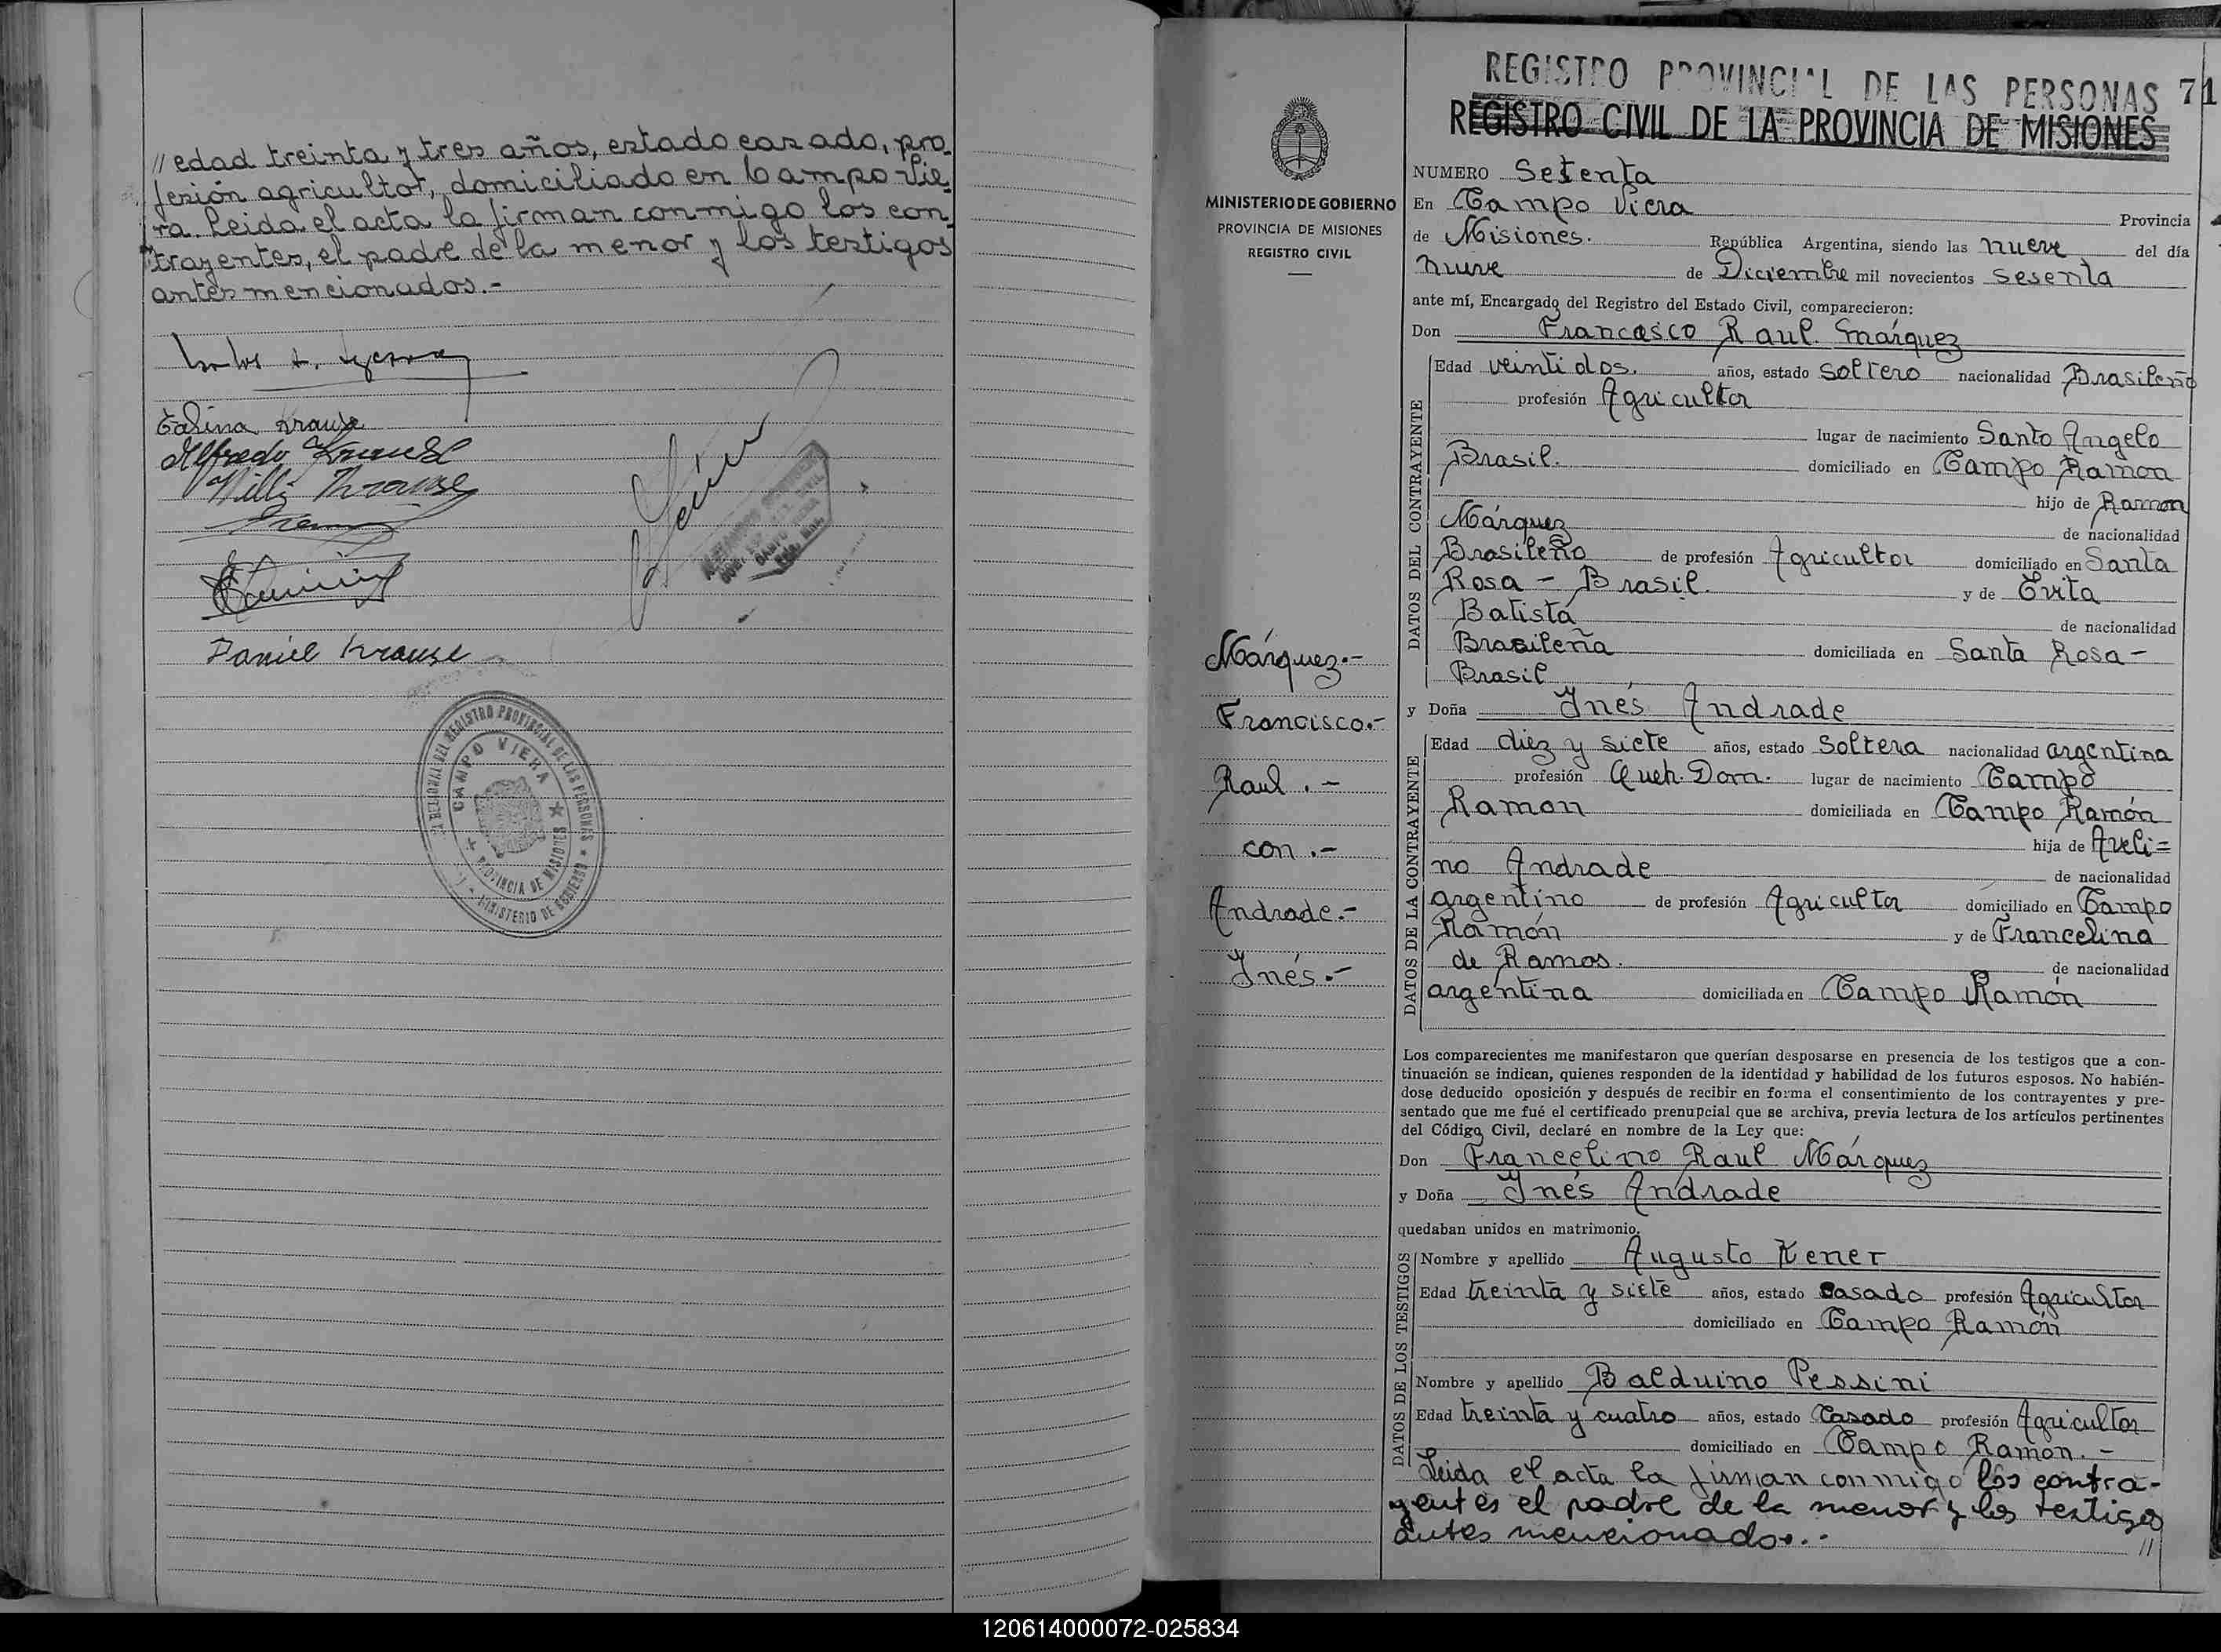 // edad treinta y tres años, estado casado, pro-
fesión agricultor, domiciliado en Campo Vie-
ra. Leida el acta la firman conmigo los con-
trayentes, el padre de la menor y los testigos
antes mencionados.-
Krause
Alfredo Krause
Willi Krause
Daniel Krause
REGISTRO PROVINCIAL DE LAS PERSONAS
CAMPO VIERA
PROVINCIA DE MISIONES
MINISTERIO DE GOBIERNO
MINISTERIO DE GOBIERNO
PROVINCIA DE MISIONES
REGISTRO CIVIL
Márquez.-
Francisco.-
Raul.-
con.-
Andrade.-
Inés.-
REGISTRO PROVINCIAL DE LAS PERSONAS 71
REGISTRO CIVIL DE LA PROVINCIA DE MISIONES
NUMERO Setenta
En Campo Viera Provincia
de Misiones. República Argentina, siendo las nueve del día
nueve de Diciembre mil novecientos sesenta
ante mí, Encargado del Registro del Estado Civil, comparecieron:
Don Francisco Raul Márquez
DATOS DEL CONTRAYENTE
Edad veintidos. años, estado soltero nacionalidad Brasileño
profesión Agricultor
lugar de nacimiento Santo Angelo
Brasil. domiciliado en Campo Ramon
hijo de Ramon
Márquez de nacionalidad
Brasileño de profesión Agricultor domiciliado en Santa
Rosa - Brasil. y de Evita
Batista de nacionalidad
Brasileña domiciliada en Santa Rosa -
Brasil
y Doña Inés Andrade
DATOS DE LA CONTRAYENTE
Edad diez y siete años, estado Soltera nacionalidad argentina
profesión Queh. Dom. lugar de nacimiento Campo
Ramon domiciliada en Campo Ramón
hija de Aveli=
no Andrade de nacionalidad
argentino de profesión Agricultor domiciliado en Campo
Ramón y de Francelina
de Ramos. de nacionalidad
argentina domiciliada en Campo Ramón
Los comparecientes me manifestaron que querían desposarse en presencia de los testigos que a con-
tinuación se indican, quienes responden de la identidad y habilidad de los futuros esposos. No habién-
dose deducido oposición y después de recibir en forma el consentimiento de los contrayentes y pre-
sentado que me fué el certificado prenupcial que se archiva, previa lectura de los artículos pertinentes
del Código Civil, declaré en nombre de la Ley que:
Don Francelino Raul Márquez
y Doña Inés Andrade
quedaban unidos en matrimonio.
DATOS DE LOS TESTIGOS
Nombre y apellido Augusto Kener
Edad treinta y siete años, estado Casado profesión Agricultor
domiciliado en Campo Ramón
Nombre y apellido Balduino Pessini
Edad treinta y cuatro años, estado Casado profesión Agricultor
domiciliado en Campo Ramon.-
Leida el acta la firman conmigo los contra-
yentes el padre de la menor y los testigos
antes mencionados.-
//
120614000072-025834